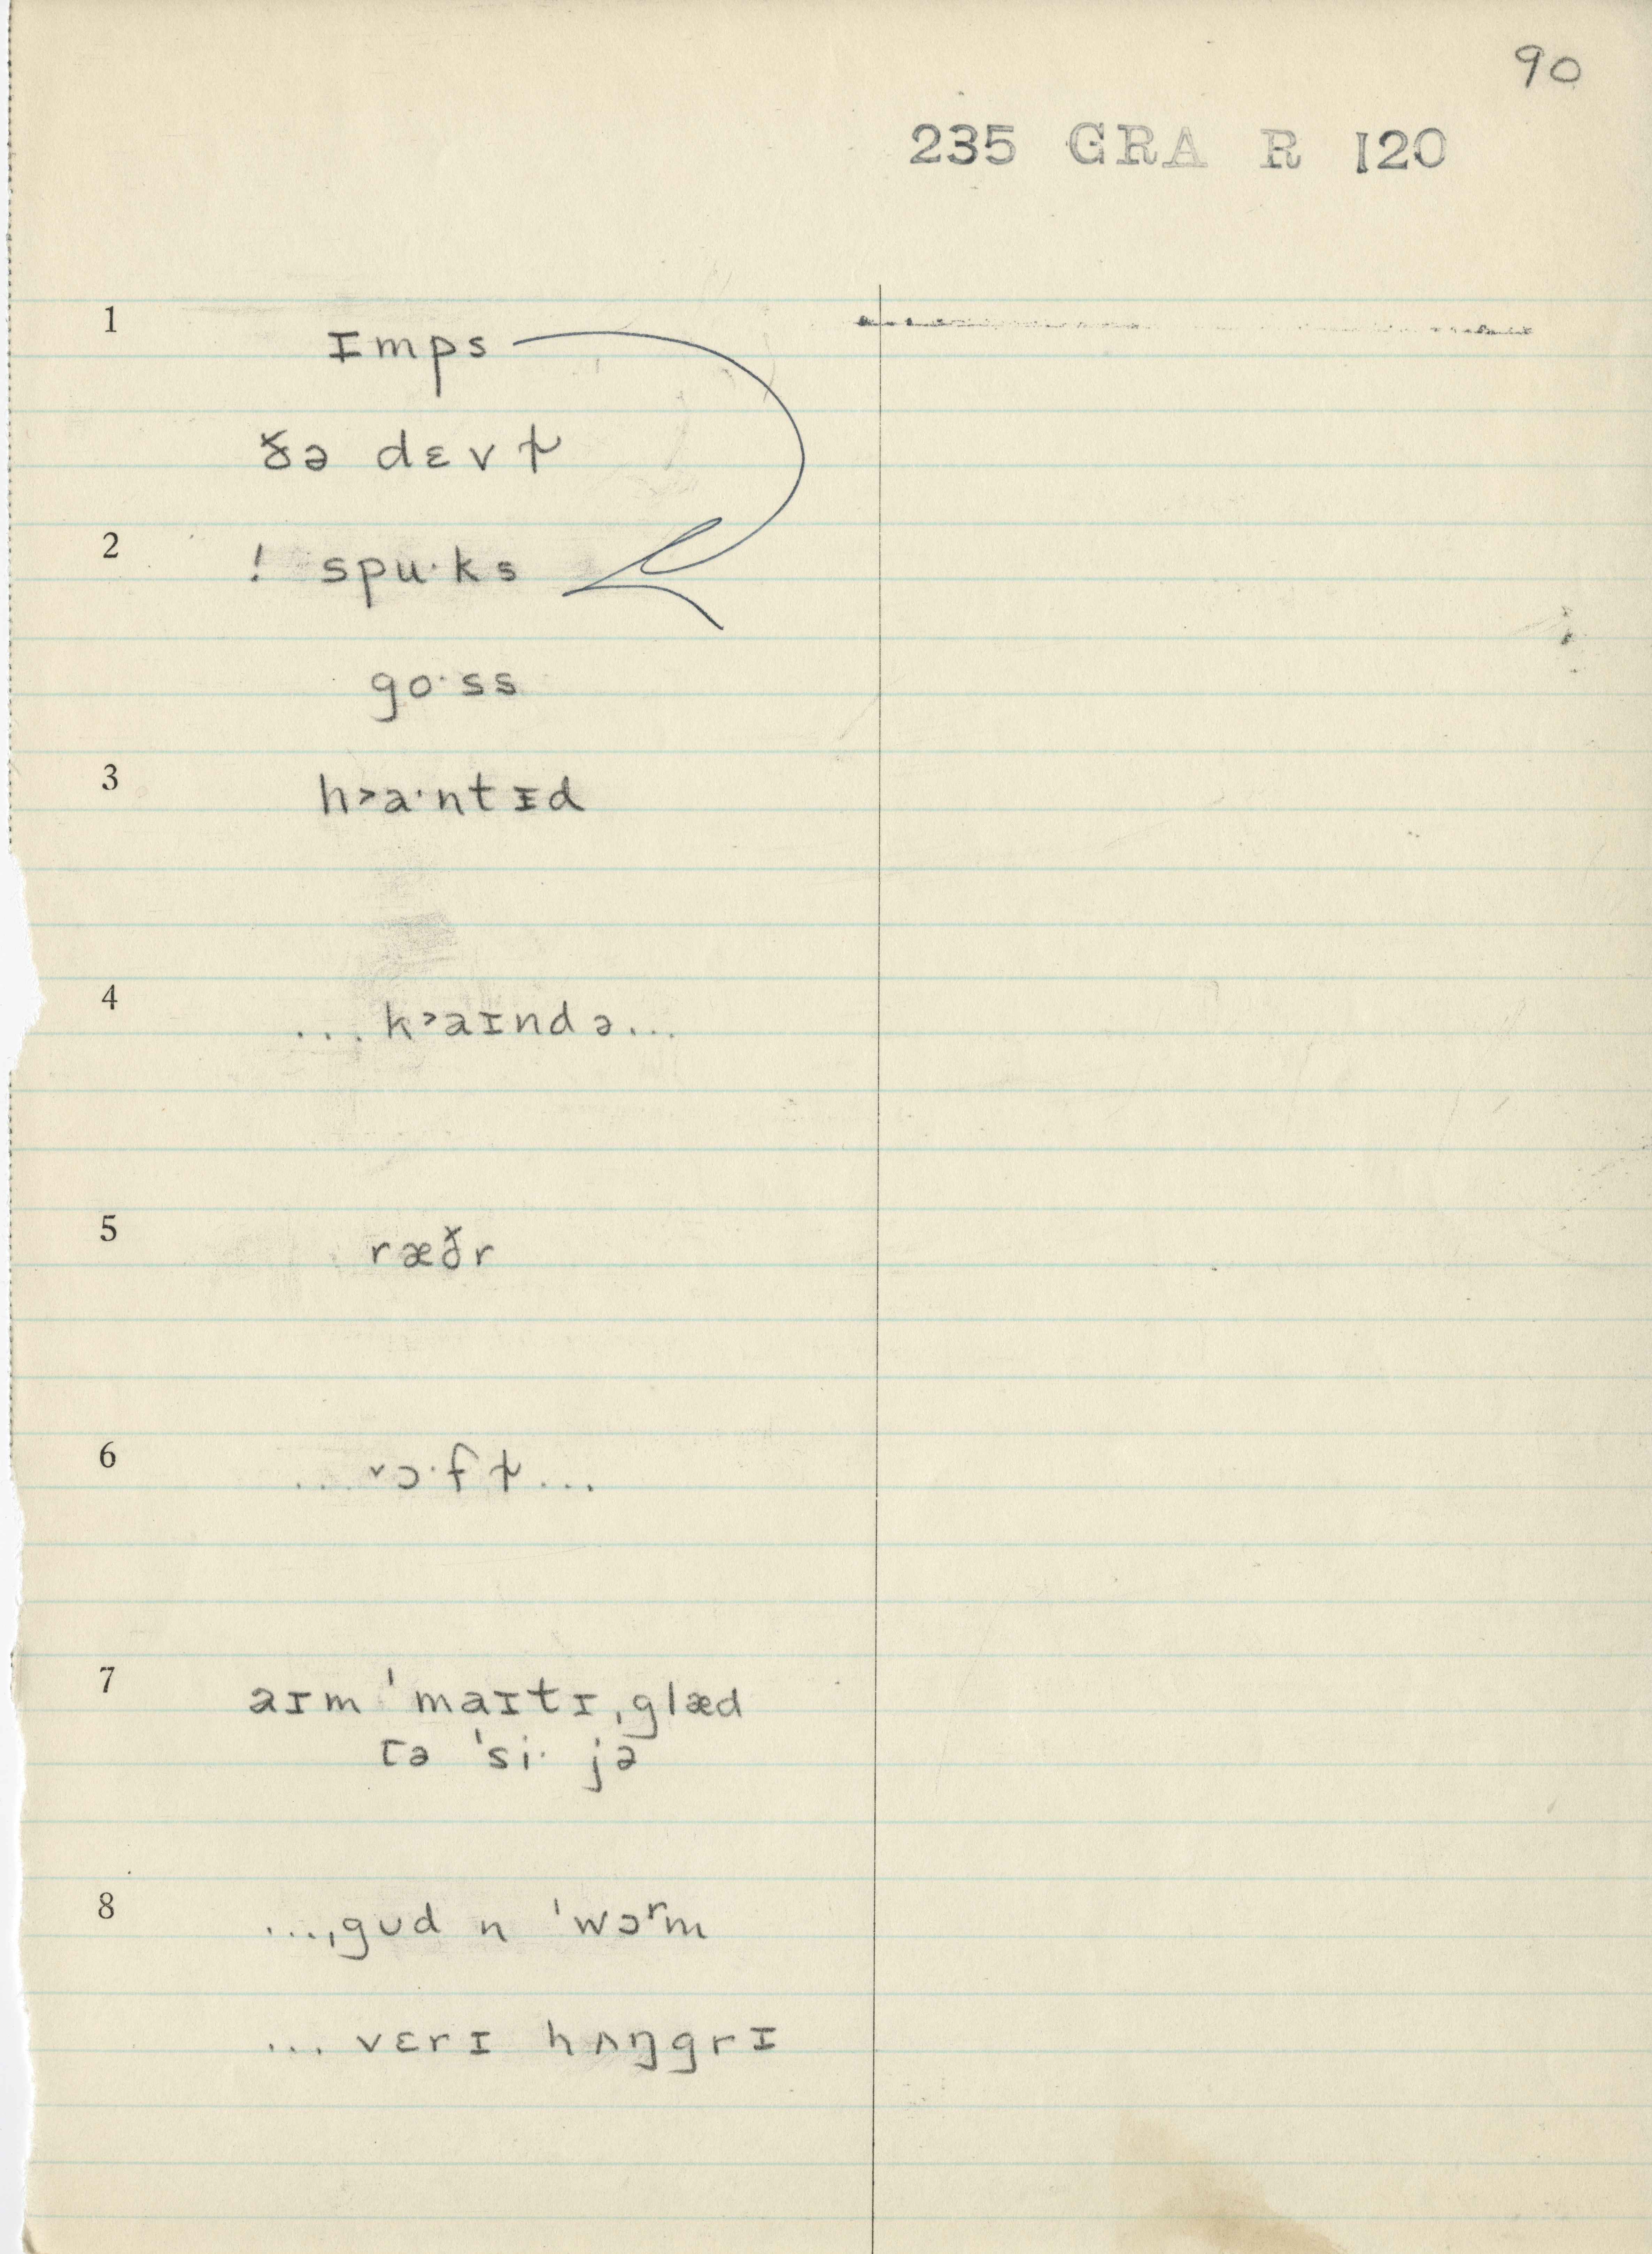 90
235 GRA R 120
1 ɪmps
ðə dɛvɫ
2 ! spu·ks
go·ss
3 h˃a·ntɪd
4 ... k˃aɪndə...
5 ræðr
6 ... ˅ɔ·fɫ...
7 aɪm ˈmaɪtɪ ˌglæd
tə ˈsi· jə
8 ...ˌgʊd n ˈwɔʳm
... vɛrɪ hʌŋgrɪ